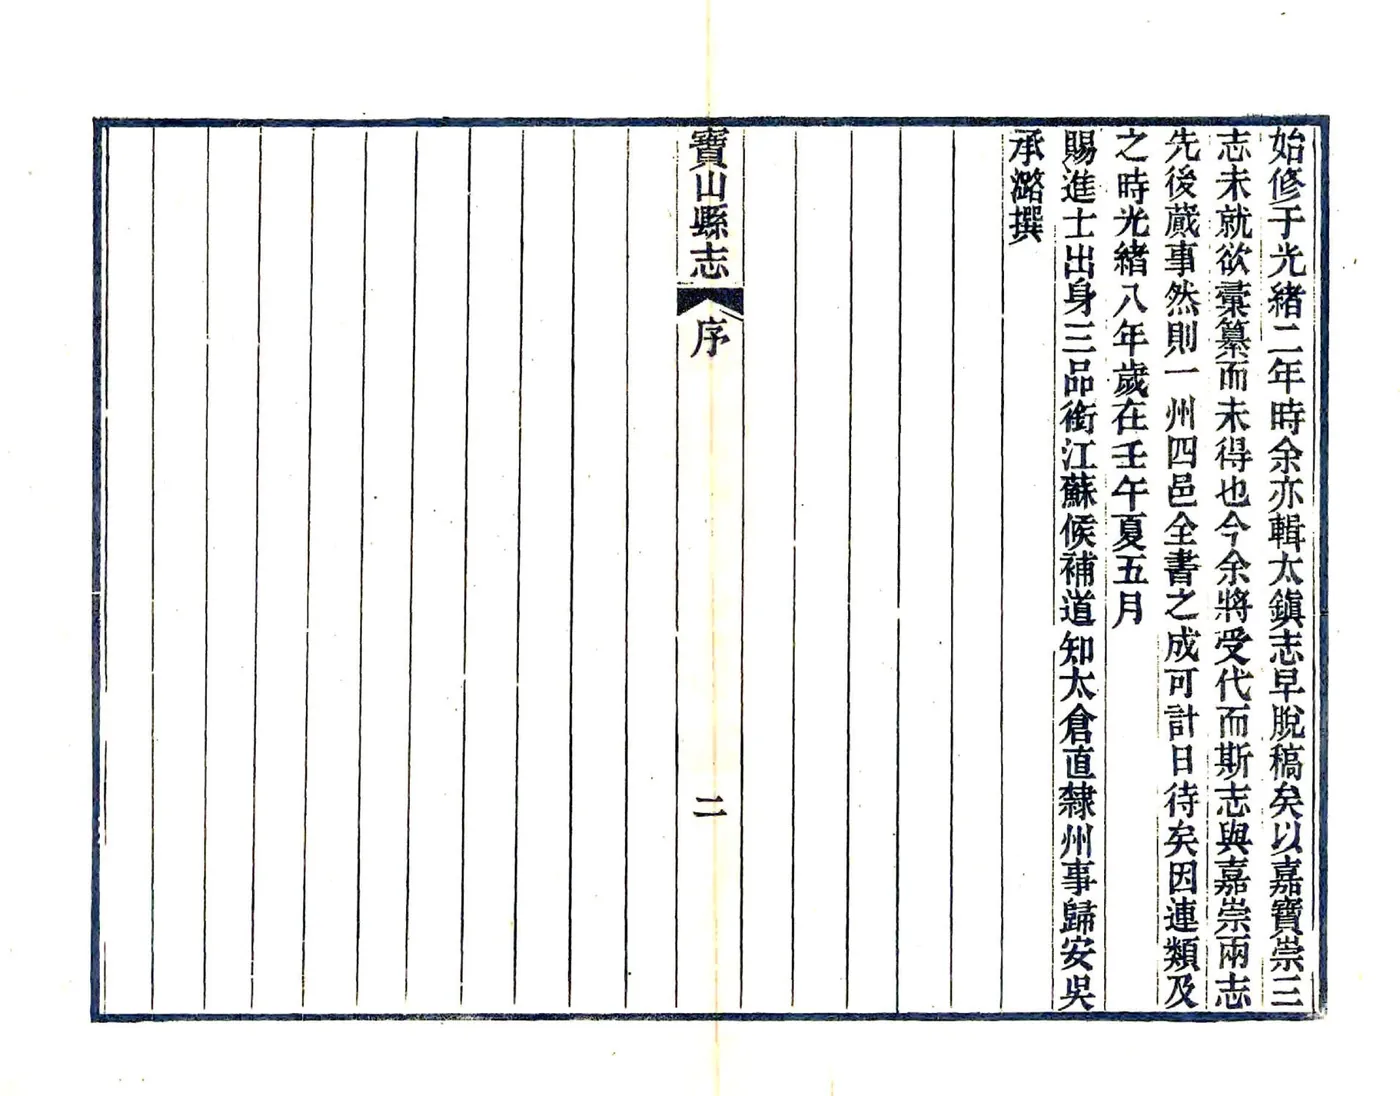 始修于光緒二年時余亦輯太鎭志早脫稿矣以嘉寶崇三
志未就欲彚纂而未得也今余將受代而斯志與嘉崇兩志
先後蕆事然則一州四邑全書之成可計日待矣因連類及
之時光緒八年歲在壬午夏五月
賜進士出身三品銜江蘇候補道知太倉直隸州事歸安吳
承潞撰
寶山縣志
序
二